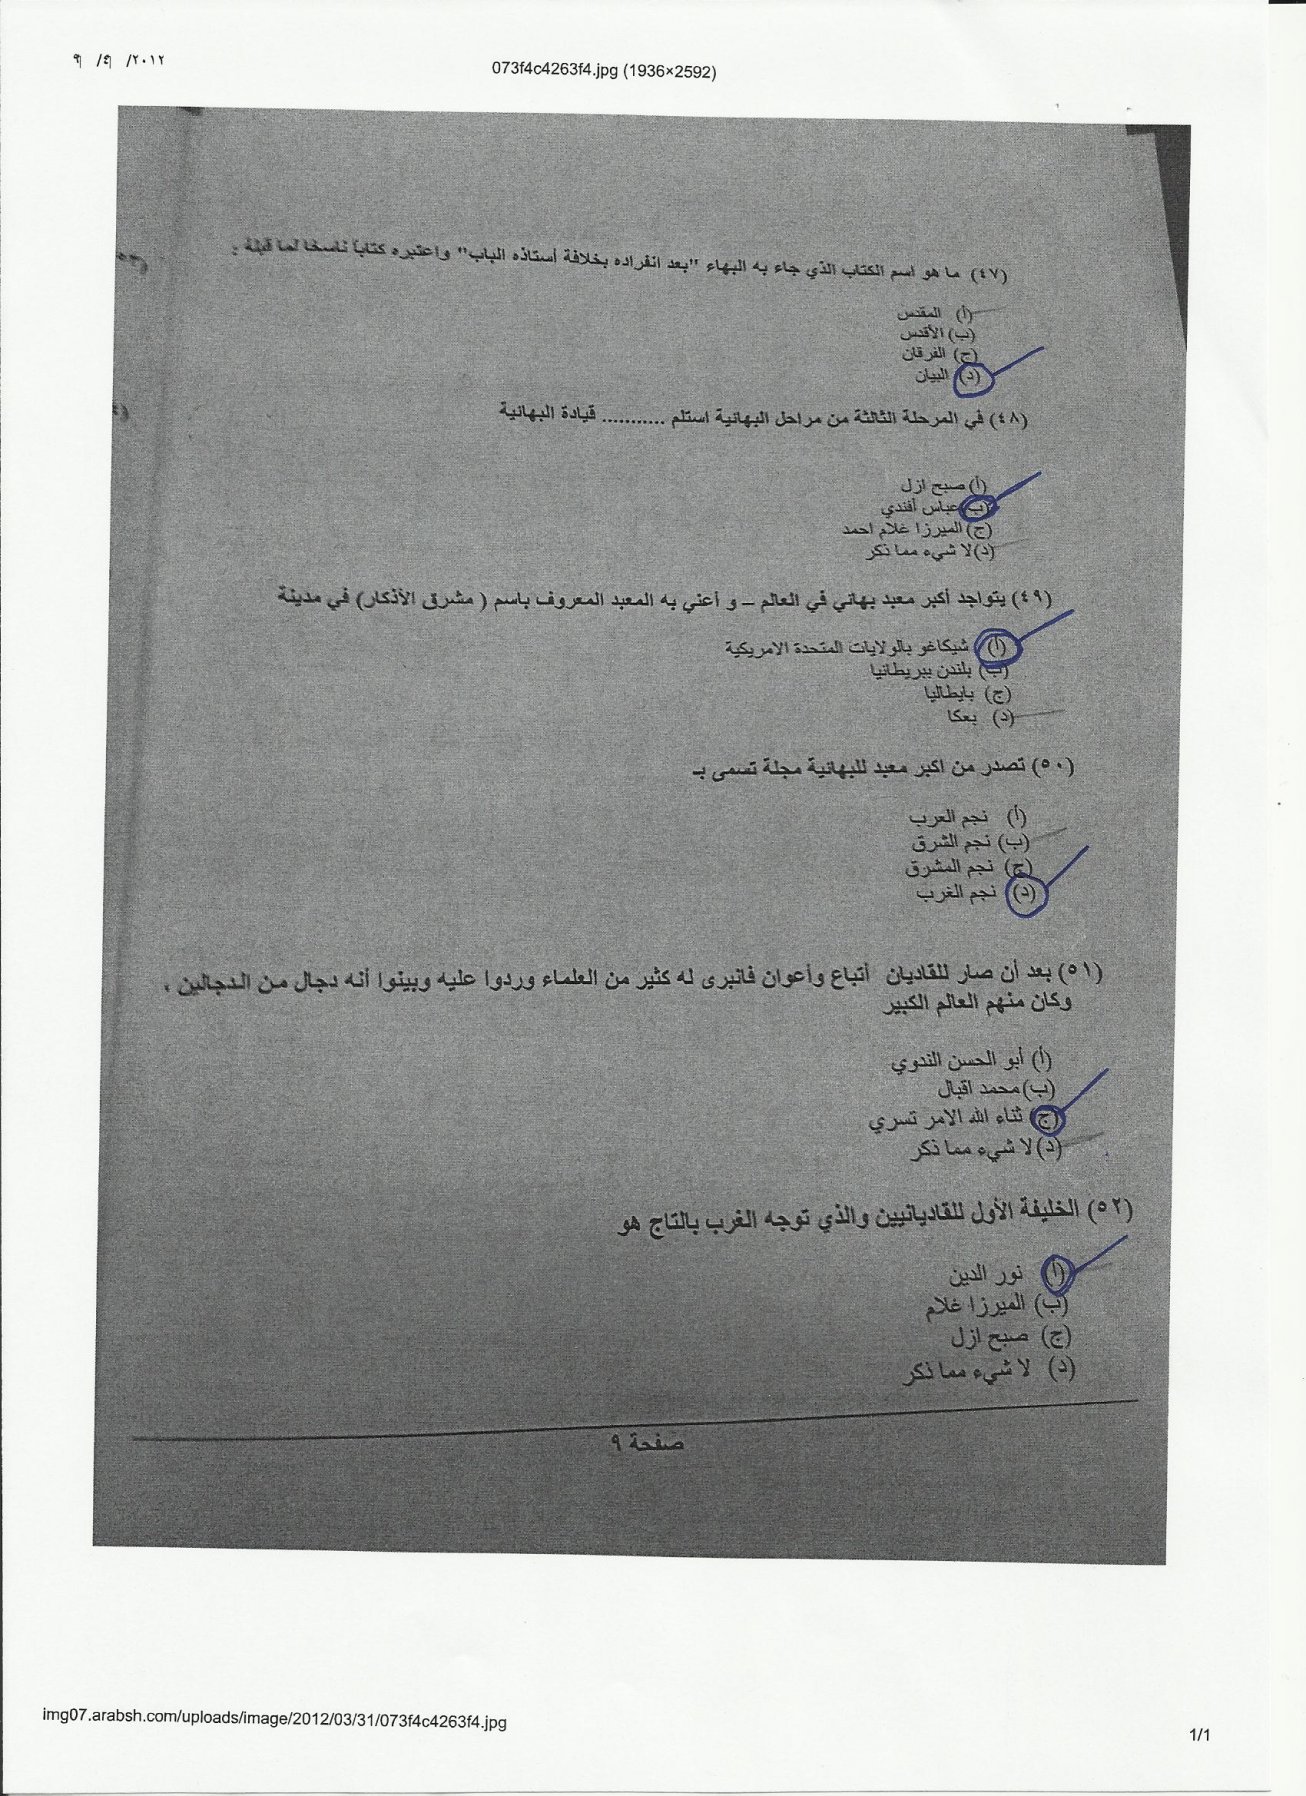 ٢٠١٢/ ٤/ ٩
073f4c4263f4.jpg (1936×2592)
(٤٧) ما هو اسم الكتاب الذي جاء به البهاء "بعد انفراده بخلافة أستاذه الباب" واعتبره كتاباً ناسخا لما قبله :
(أ) المقدس
(ب) الأقدس
(ج) الفرقان
(د) البيان
(٤٨) في المرحلة الثالثة من مراحل البهائية استلم ........... قيادة البهائية
(أ) صبح ازل
(ب) عباس أفندي
(ج) الميرزا غلام احمد
(د) لا شيء مما ذكر
(٤٩) يتواجد أكبر معبد بهائي في العالم – و أعني به المعبد المعروف باسم ( مشرق الأذكار) في مدينة
(أ) شيكاغو بالولايات المتحدة الامريكية
(ب) بلندن ببريطانيا
(ج) بايطاليا
(د) بعكا
(٥٠) تصدر من اكبر معبد للبهائية مجلة تسمى بـ
(أ) نجم العرب
(ب) نجم الشرق
(ج) نجم المشرق
(د) نجم الغرب
(٥١) بعد أن صار للقاديان أتباع وأعوان فانبرى له كثير من العلماء وردوا عليه وبينوا أنه دجال من الدجالين ،
وكان منهم العالم الكبير
(أ) أبو الحسن الندوي
(ب) محمد اقبال
(ج) ثناء الله الامر تسري
(د) لا شيء مما ذكر
(٥٢) الخليفة الأول للقاديانيين والذي توجه الغرب بالتاج هو
(أ) نور الدين
(ب) الميرزا غلام
(ج) صبح ازل
(د) لا شيء مما ذكر
صفحة ٩
img07.arabsh.com/uploads/image/2012/03/31/073f4c4263f4.jpg
1/1